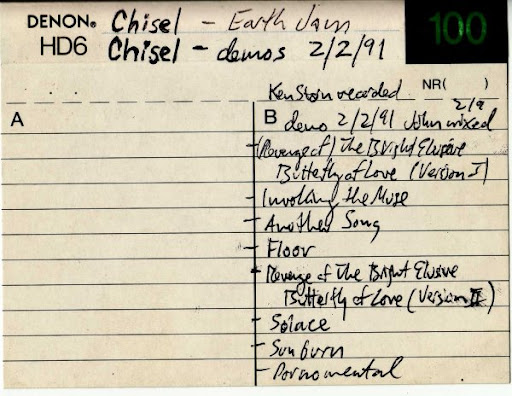 DENON® Chisel - Earth Jam
HD6 Chisel - demos 2/2/91
100
Ken Stein recorded NR( )
2/9
A
B demo 2/2/91 John mixed
- (Revenge of) The Bright Elusive
Butterfly of Love (Version I)
- Invoking the Muse
- Another Song
- Floor
- Revenge of The Bright Elusive
Butterfly of Love (Version II)
- Solace
- Sunburn
- Pornomental